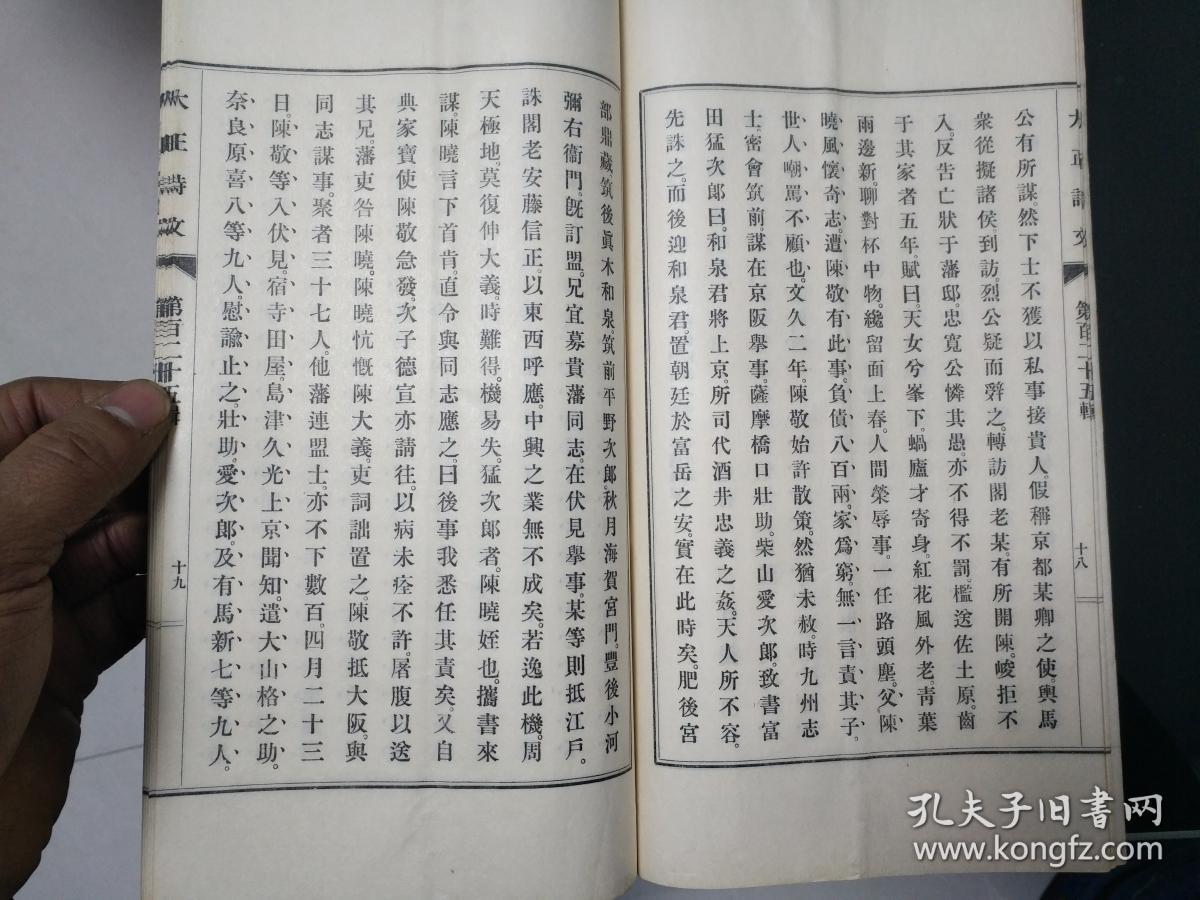 公有所謀。然下士不獲以私事接貴人。假稱京都某卿之使。輿馬
衆從擬諸侯。到訪烈公疑而辭之。轉訪閣老某。有所開陳。峻拒不
入。反告亡狀于藩邸。忠寬公憐其愚。亦不得不罰。檻送佐土原。齒
于其家者五年。賦曰。天女兮峯下。蝸廬才寄身。紅花風外老。靑葉
雨邊新。聊對杯中物。纔留面上春。人間榮辱事。一任路頭塵。父陳
曉風懷奇志。遭陳敬有此事。負債八百兩。家爲窮。無一言責其子。
世人嘲罵不顧也。文久二年。陳敬始許散策。然猶未赦。時九州志
士密會筑前。謀在京阪擧事。薩摩橋口壯助。柴山愛次郎。致書富
田猛次郎曰。和泉君將上京。所司代酒井忠義之姦。天人所不容。
先誅之。而後迎和泉君。置朝廷於富岳之安。實在此時矣。肥後宮
十八
部鼎藏筑後眞木和泉。筑前平野次郎。秋月海賀宮門。豐後小河
彌右衞門。旣訂盟。兄宜募貴藩同志。在伏見擧事。某等則抵江戶。
誅閣老安藤信正。以東西呼應。中興之業無不成矣。若逸此機。周
天極地。莫復伸大義。時難得。機易失。猛次郎者。陳曉姪也。攜書來
謀。陳曉言下首肯。直令與同志應之。曰後事我悉任其責矣。又自
典家寶使陳敬急發。次子德宣亦請往。以病未痊不許。屠腹以送
其兄。藩吏咎陳曉。陳曉忼慨陳大義。吏詞詘置之。陳敬抵大阪。與
同志謀事。聚者三十七人。他藩連盟士。亦不下數百。四月二十三
日。陳敬等入伏見。宿寺田屋。島津久光上京聞知。遣大山格之助。
奈良原喜八等九人。慰諭止之。壯助。愛次郎。及有馬新七等九人。
大正詩文
第百二十五輯
十九
孔夫子旧书网
www.kongfz.com